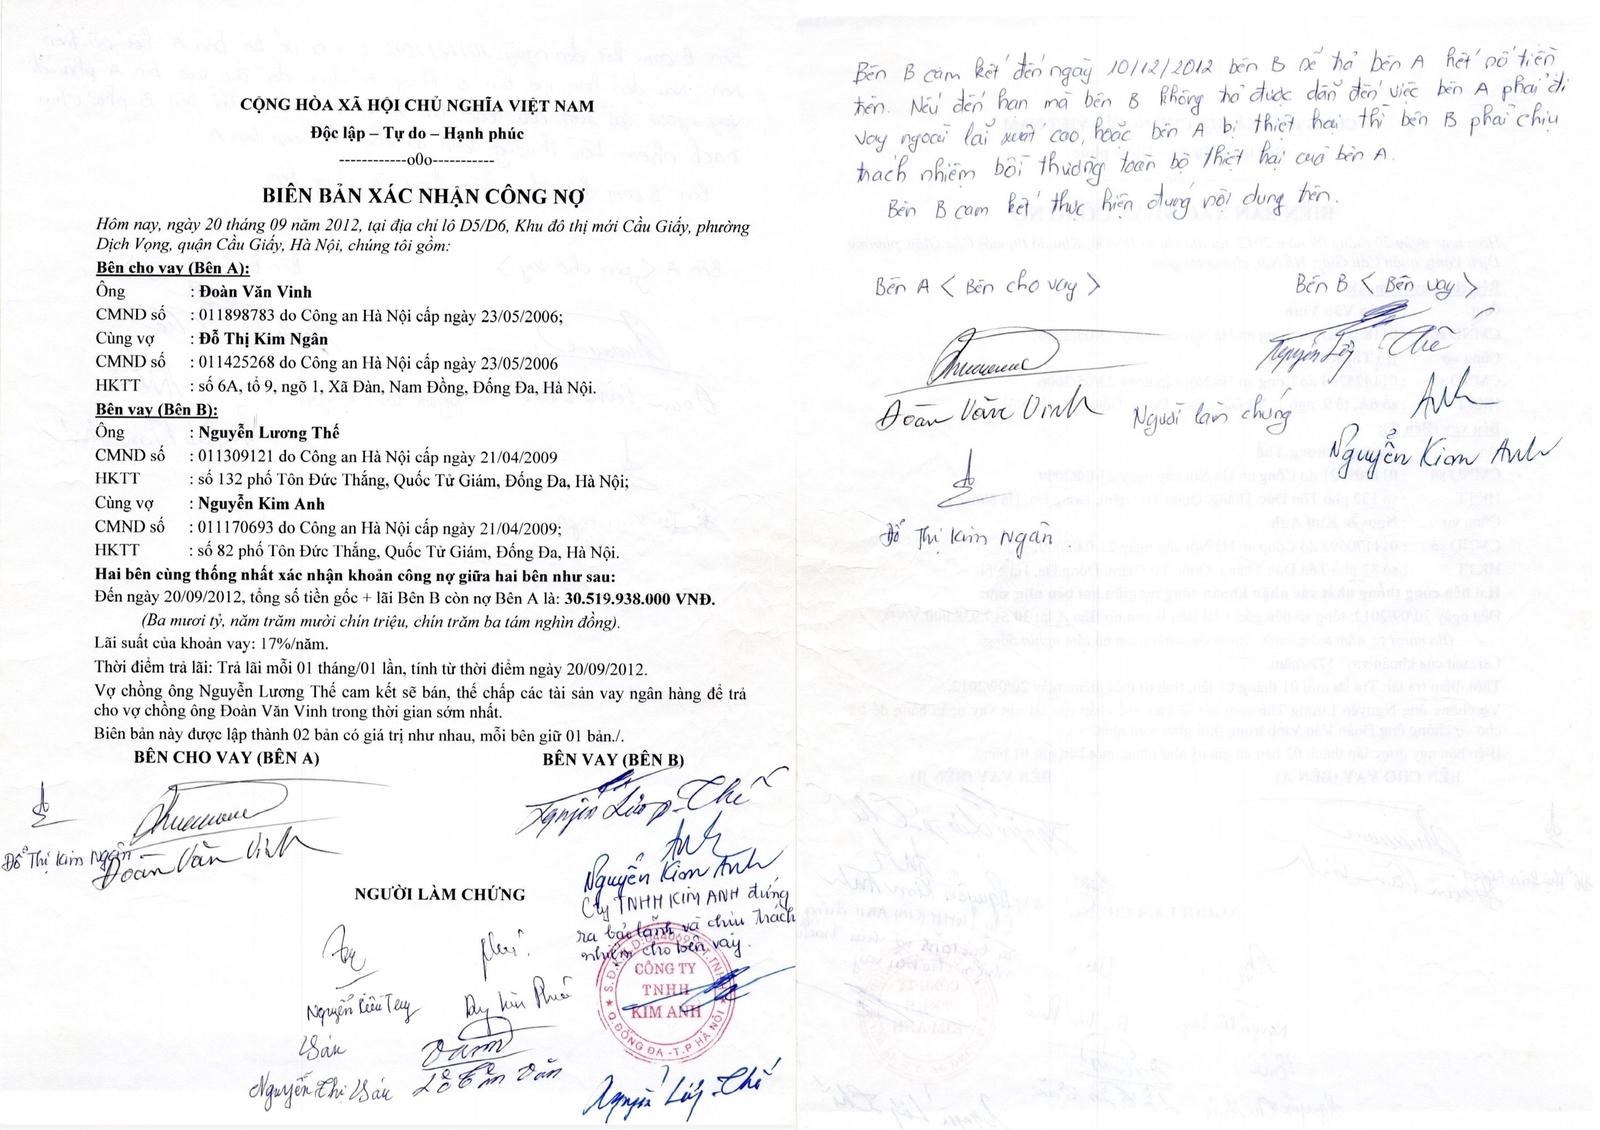 CỘNG HÒA XÃ HỘI CHỦ NGHĨA VIỆT NAM
Độc lập – Tự do – Hạnh phúc
------------o0o-----------
BIÊN BẢN XÁC NHẬN CÔNG NỢ
Hôm nay, ngày 20 tháng 09 năm 2012, tại địa chỉ lô D5/D6, Khu đô thị mới Cầu Giấy, phường
Dịch Vọng, quận Cầu Giấy, Hà Nội, chúng tôi gồm:
Bên cho vay (Bên A):
Ông : Đoàn Văn Vinh
CMND số : 011898783 do Công an Hà Nội cấp ngày 23/05/2006;
Cùng vợ : Đỗ Thị Kim Ngân
CMND số : 011425268 do Công an Hà Nội cấp ngày 23/05/2006
HKTT : số 6A, tổ 9, ngõ 1, Xã Đàn, Nam Đồng, Đống Đa, Hà Nội.
Bên vay (Bên B):
Ông : Nguyễn Lương Thế
CMND số : 011309121 do Công an Hà Nội cấp ngày 21/04/2009
HKTT : số 132 phố Tôn Đức Thắng, Quốc Tử Giám, Đống Đa, Hà Nội;
Cùng vợ : Nguyễn Kim Anh
CMND số : 011170693 do Công an Hà Nội cấp ngày 21/04/2009;
HKTT : số 82 phố Tôn Đức Thắng, Quốc Tử Giám, Đống Đa, Hà Nội.
Hai bên cùng thống nhất xác nhận khoản công nợ giữa hai bên như sau:
Đến ngày 20/09/2012, tổng số tiền gốc + lãi Bên B còn nợ Bên A là: 30.519.938.000 VNĐ.
(Ba mươi tỷ, năm trăm mười chín triệu, chín trăm ba tám nghìn đồng).
Lãi suất của khoản vay: 17%/năm.
Thời điểm trả lãi: Trả lãi mỗi 01 tháng/01 lần, tính từ thời điểm ngày 20/09/2012.
Vợ chồng ông Nguyễn Lương Thế cam kết sẽ bán, thế chấp các tài sản vay ngân hàng để trả
cho vợ chồng ông Đoàn Văn Vinh trong thời gian sớm nhất.
Biên bản này được lập thành 02 bản có giá trị như nhau, mỗi bên giữ 01 bản./.
BÊN CHO VAY (BÊN A) BÊN VAY (BÊN B)
Nguyễn Lương Thế
Đỗ Thị Kim Ngân
Đoàn Văn Vinh
Anh
Nguyễn Kim Anh
NGƯỜI LÀM CHỨNG
Cty TNHH KIM ANH đứng
ra bảo lãnh và chịu trách
nhiệm cho bên vay.
CÔNG TY
TNHH
KIM ANH
Q.ĐỐNG ĐA - T.P HÀ NỘI
Nguyễn Thị
Nguyễn Lương Thế
Bên B cam kết đến ngày 10/12/2012 bên B sẽ trả bên A hết số tiền
trên. Nếu đến hạn mà bên B không trả được dẫn đến việc bên A phải đi
vay ngoài lãi xuất cao, hoặc bên A bị thiệt hại thì bên B phải chịu
trách nhiệm bồi thường toàn bộ thiệt hại của bên A.
Bên B cam kết thực hiện đúng nội dung trên.
Bên A < Bên cho vay > Bên B < Bên vay >
Nguyễn Lương Thế
Đoàn Văn Vinh Người làm chứng Anh
Nguyễn Kim Anh
Đỗ Thị Kim Ngân